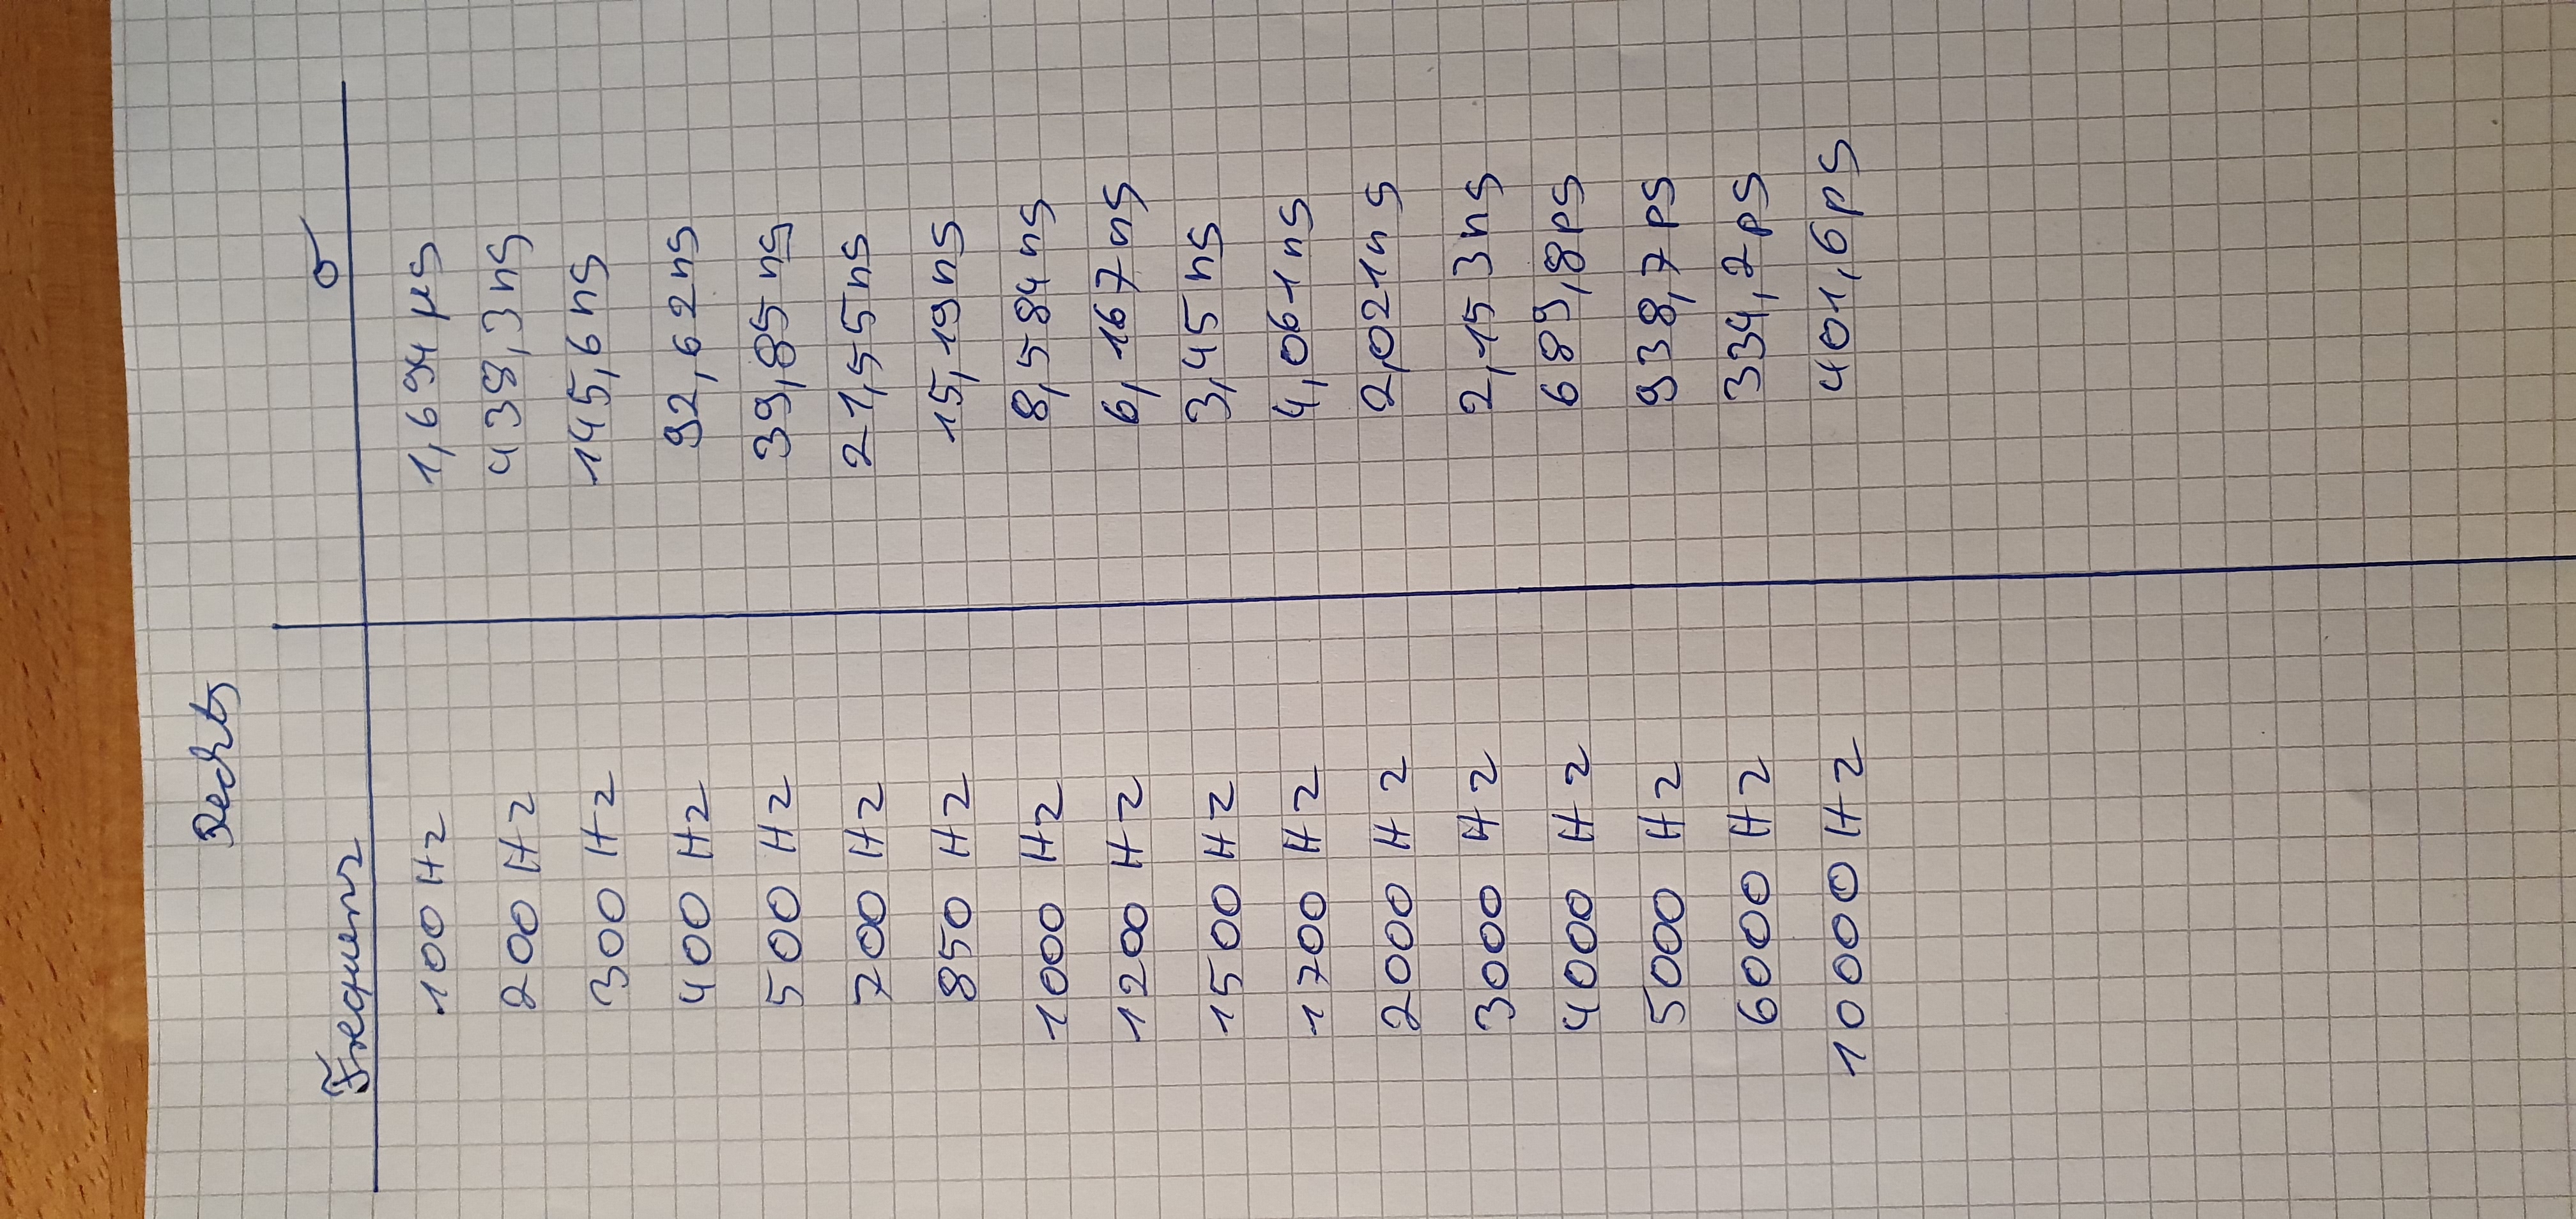 Rechts
Frequenz σ
100 Hz 1,694 µs
200 Hz 438,3 ns
300 Hz 145,6 ns
400 Hz 92,62 ns
500 Hz 39,85 ns
700 Hz 21,55 ns
850 Hz 15,19 ns
1000 Hz 8,584 ns
1200 Hz 6,167 ns
1500 Hz 3,45 ns
1700 Hz 4,061 ns
2000 Hz 2,021 ns
3000 Hz 2,153 ns
4000 Hz 689,8 ps
5000 Hz 938,7 ps
6000 Hz 334,2 ps
10000 Hz 401,6 ps